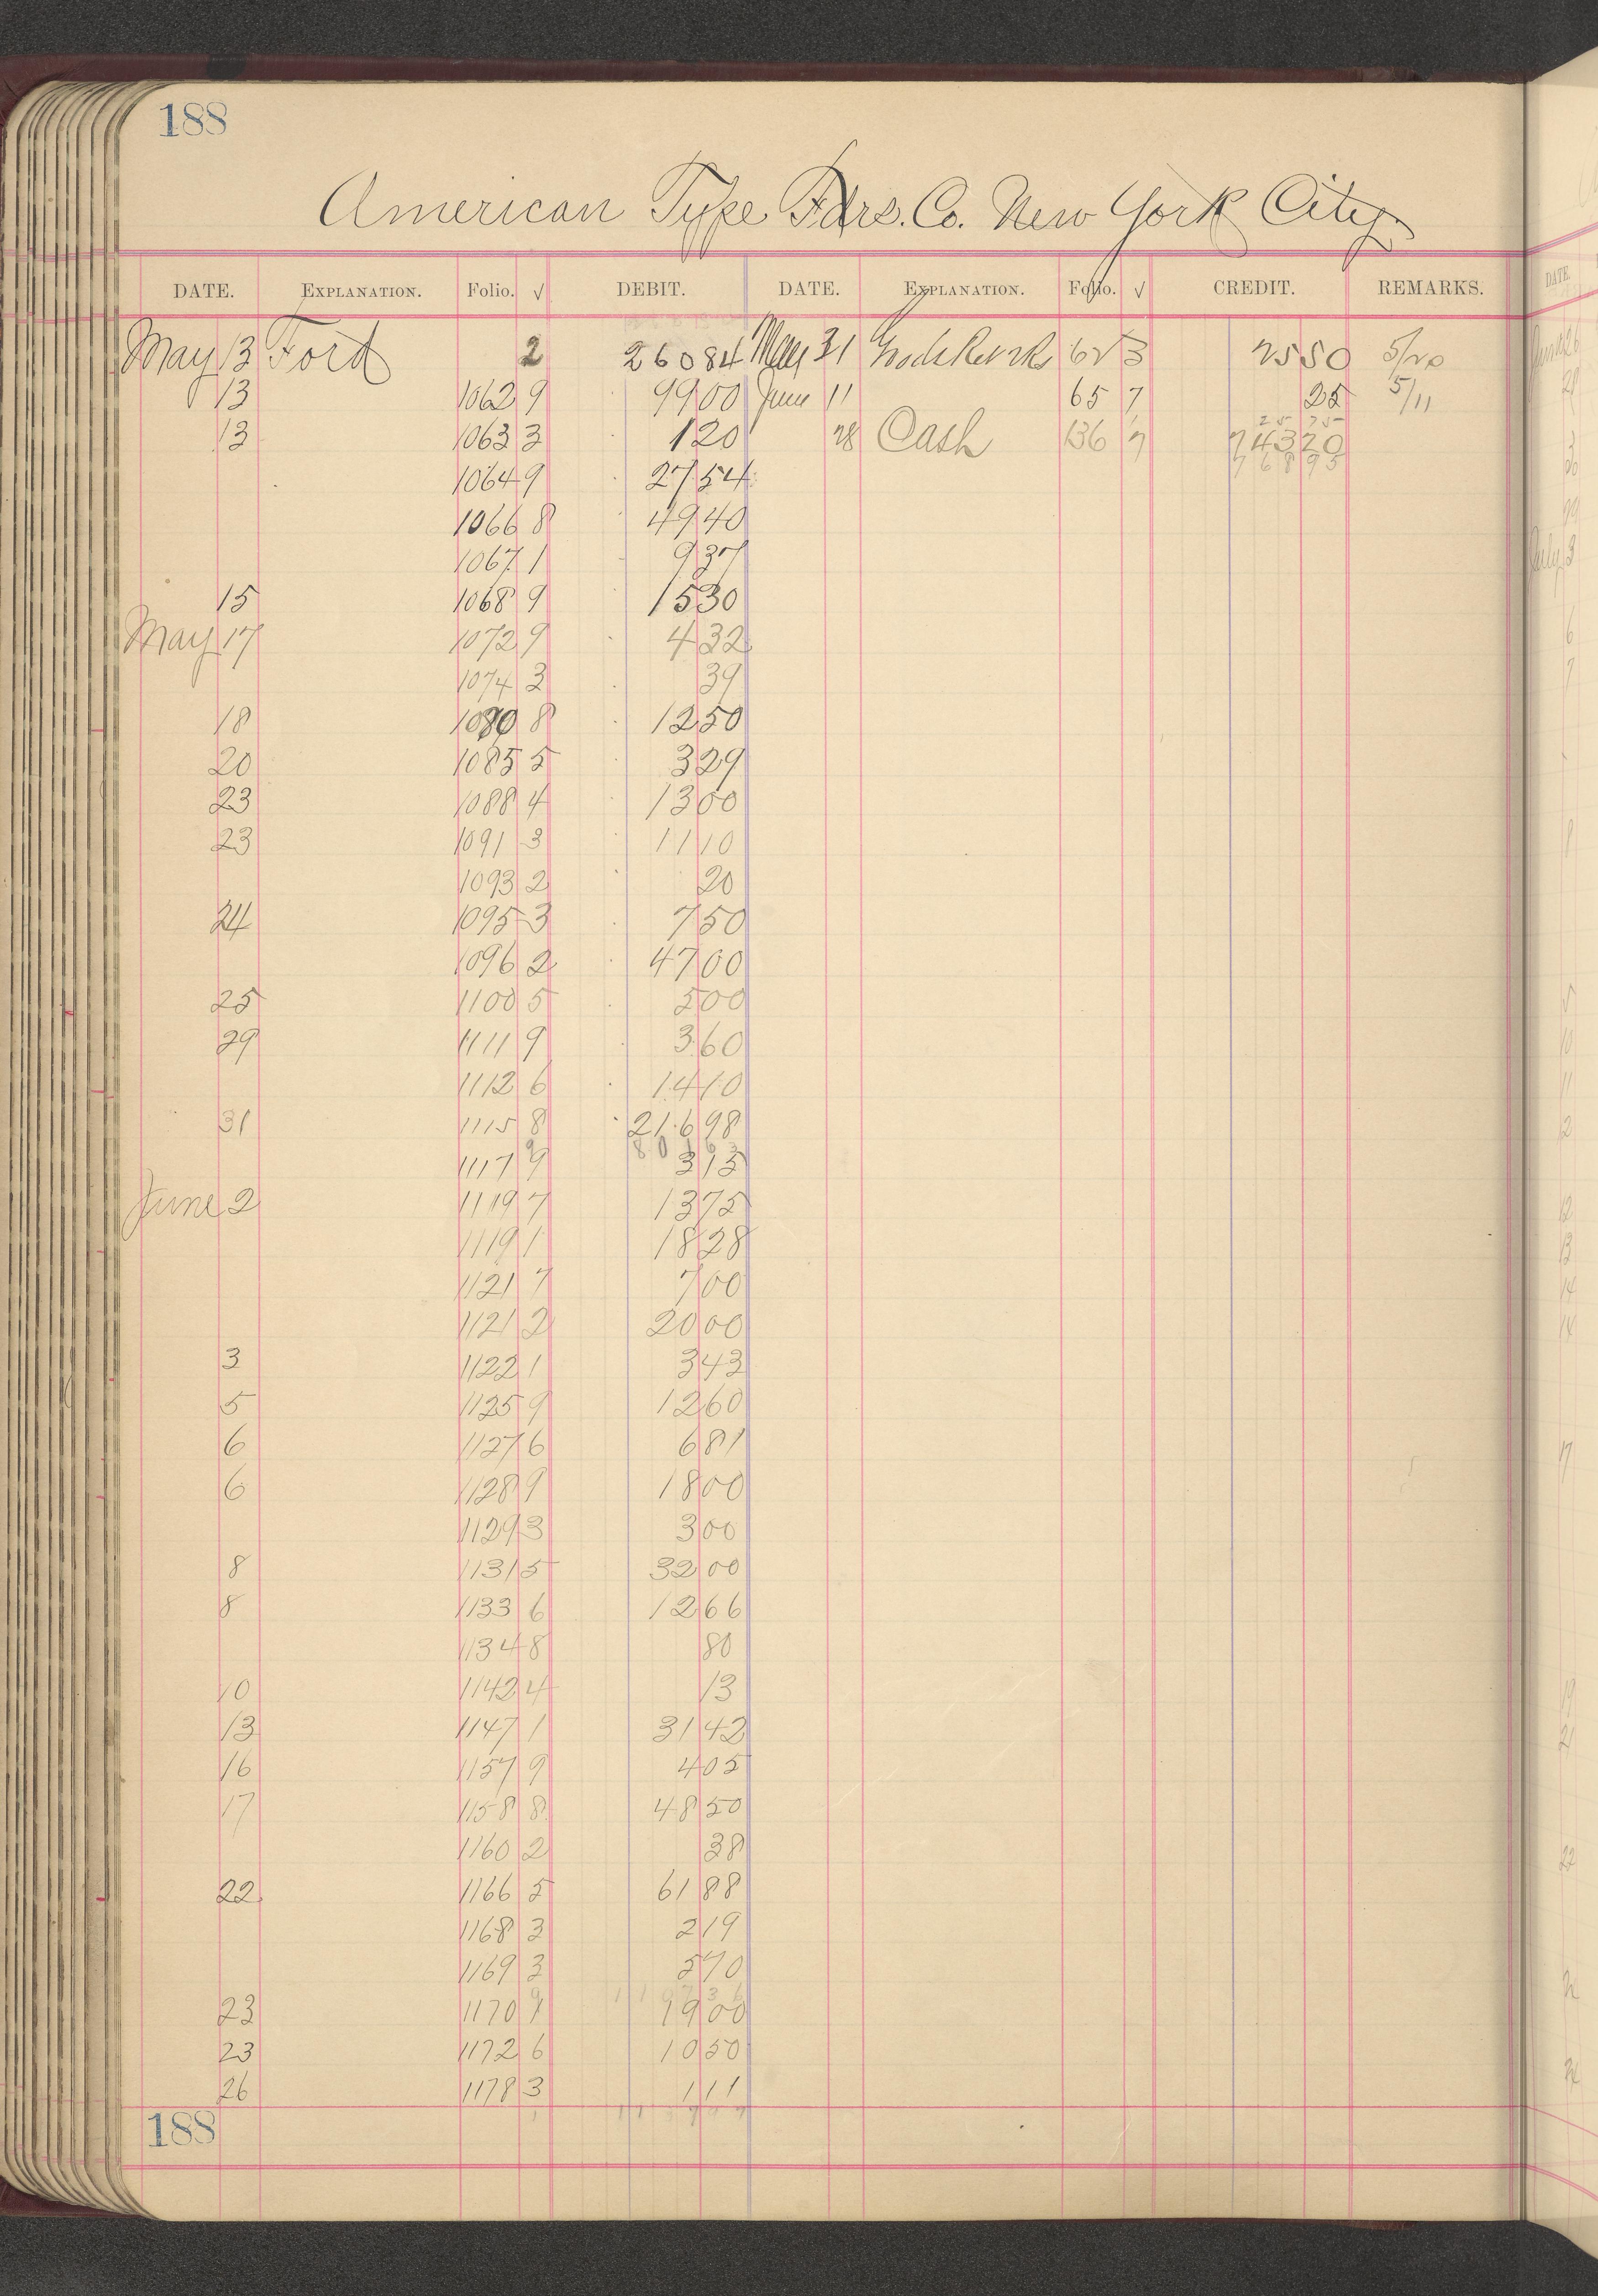 188
American Type Fdrs. Co. New York City
DATE. EXPLANATION. Folio. √ DEBIT. DATE. EXPLANATION. Folio. √ CREDIT. REMARKS.
May 13 Ford 2 260 84 May 31 Goods Retd 62 3 25 50 5/20
13 1062 9 99 00 June 11 65 7 25 5/11
25 75
13 1063 3 1 20 28 Cash 136 7 743 20
768 95
1064 9 27 54
1066 8 49 40
1067 1 9 37
15 1068 9 15 30
May 17 1072 9 4 32
1074 3 39
18 1080 8 12 50
20 1085 5 3 29
23 1088 4 13 00
23 1091 3 11 10
1093 2 20
24 1095 3 7 50
1096 2 47 00
25 1100 5 5 00
29 1111 9 3 60
1112 6 14 10
31 1115 8 216 98
1117 9 3 15
June 2 1119 7 13 75
1119 1 18 28
1121 7 7 00
1121 2 20 00
3 1122 1 3 43
5 1125 9 12 60
6 1127 6 6 81
6 1128 9 18 00
1129 3 3 00
8 1131 5 32 00
8 1133 6 12 66
1134 8 80
10 1142 4 13
13 1147 1 31 42
16 1157 9 4 05
17 1158 8 48 50
1160 2 38
22 1166 5 61 88
1168 3 2 19
1169 3 5 70
23 1170 1 19 00
23 1172 6 10 50
26 1178 3 1 11
188